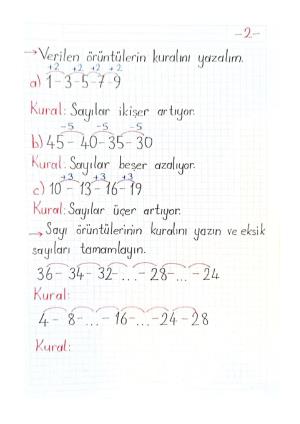 -2-
→Verilen örüntülerin kuralını yazalım.
+2 +2 +2 +2
a) 1-3-5-7-9
Kural: Sayılar ikişer artıyor.
-5 -5 -5
b) 45-40-35-30
Kural: Sayılar beşer azalıyor.
+3 +3 +3
c) 10-13-16-19
Kural: Sayılar üçer artıyor.
→Sayı örüntülerinin kuralını yazın ve eksik
sayıları tamamlayın.
36-34-32-...-28-...-24
Kural:
4-8-...-16-...-24-28
Kural: